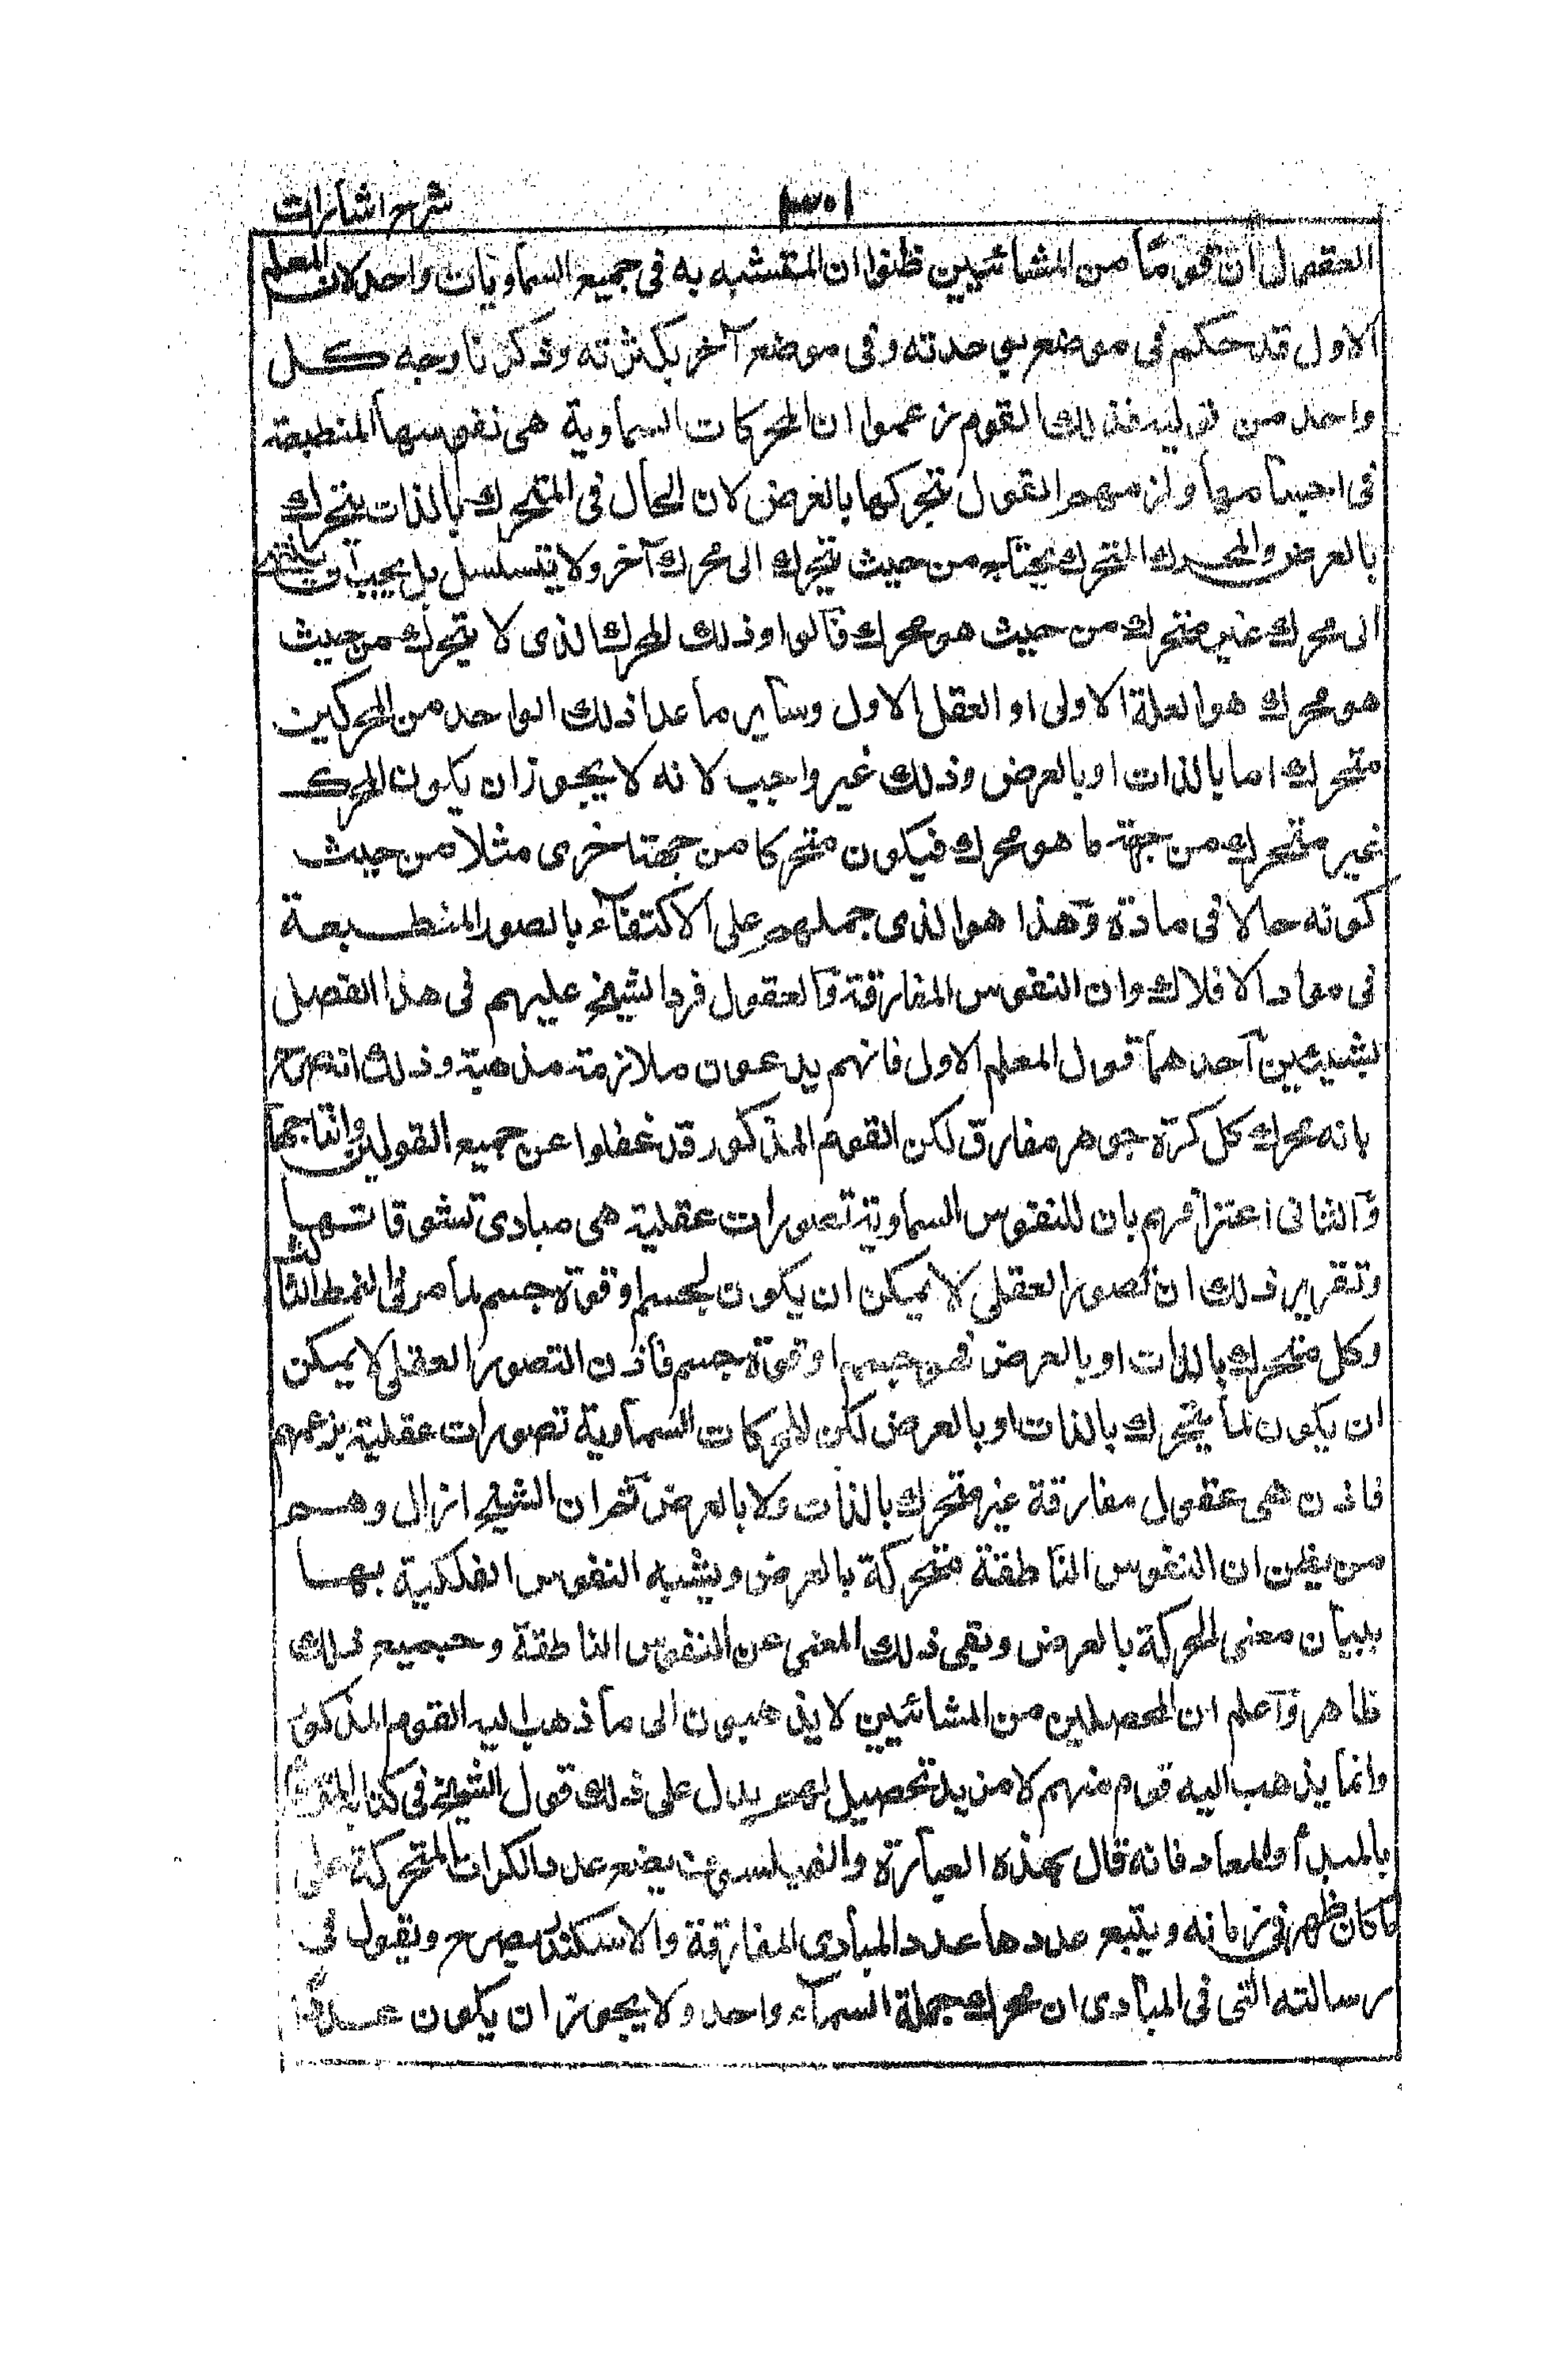 شرح اشارات
٣٠١
الفصل ان قوما من المشائيين ظنوا ان المتشبه به فى جميع السماويات واحد لان المعلم
الاول قد حكم فى موضع بوحدته وفى موضع آخر بكثرته وذكرنا وجه كل
واحد من قوليه فذلك القوم زعموا ان المحركات السماوية هى نفوسها المنطبعة
فى اجسامها ولزمهم القول بتحركها بالعرض لان الحال فى المتحرك بالذات يتحرك
بالعرض والمحرك المتحرك يحتاج من حيث يتحرك الى محرك آخر ولا يتسلسل بل يجب ان
الى محرك غير متحرك من حيث هو محرك قالوا وذلك المحرك الذى لا يتحرك من حيث
هو محرك هو العلة الاولى او العقل الاول وساير ما عدا ذلك الواحد من المحركين
متحرك اما بالذات او بالعرض وذلك غير واجب لانه لا يجوز ان يكون المحرك
غير متحرك من جهة ما هو محرك فيكون متحركا من جهة اخرى مثلا من حيث
كونه حالا فى مادة وهذا هو الذى حملهم على الاكتفاء بالصور المنطبعة
فى مواد الافلاك وان النفوس المفارقة والعقول فرد الشيخ عليهم فى هذا الفصل
بشيئين احدهما قول المعلم الاول فانهم يدعون ملازمة مذهبه وذلك انه صرح
بانه محرك كل كرة جوهر مفارق لكن القوم المذكور قد غفلوا عن جميع القولين
والثانى اعترافهم بان للنفوس السماوية تصورات عقلية هى مبادى تشوقاتها
وتقرير ذلك ان تصور العقلى لا يمكن ان يكون لجسم او قوة جسم لما مر فى النمط الثالث
وكل متحرك بالذات او بالعرض فهو جسم او قوة جسم فاذن التصور العقلى لا يمكن
ان يكون لما يتحرك بالذات او بالعرض لكن للمحركات السماوية تصورات عقلية بزعمهم
فاذن هى عقول مفارقة غير متحرك بالذات ولا بالعرض ثم ان الشيخ ازال وهم
من يظن ان النفوس الناطقة متحركة بالعرض ويشبه النفوس الفلكية بها
ببيان معنى الحركة بالعرض ونفى ذلك المعنى عن النفوس الناطقة وجميع ذلك
ظاهر واعلم ان المحصلين من المشائيين لا يذهبون الى ما ذهب اليه القوم المذكور
وانما يذهب اليه قوم منهم لا مزيد تحصيل لهم يدل على ذلك قول الشيخ فى كتابه
بالمبدأ والمعاد فانه قال بهذه العبارة والفيلسوف يضع عدد الكرات المتحركة على
ما كان ظهر فى زمانه ويتبع عددها عدد المبادى المفارقة والاسكندر يصرح ويقول فى
رسالته التى فى المبادى ان محرك جملة السماء واحد ولا يجوز ان يكون عددا